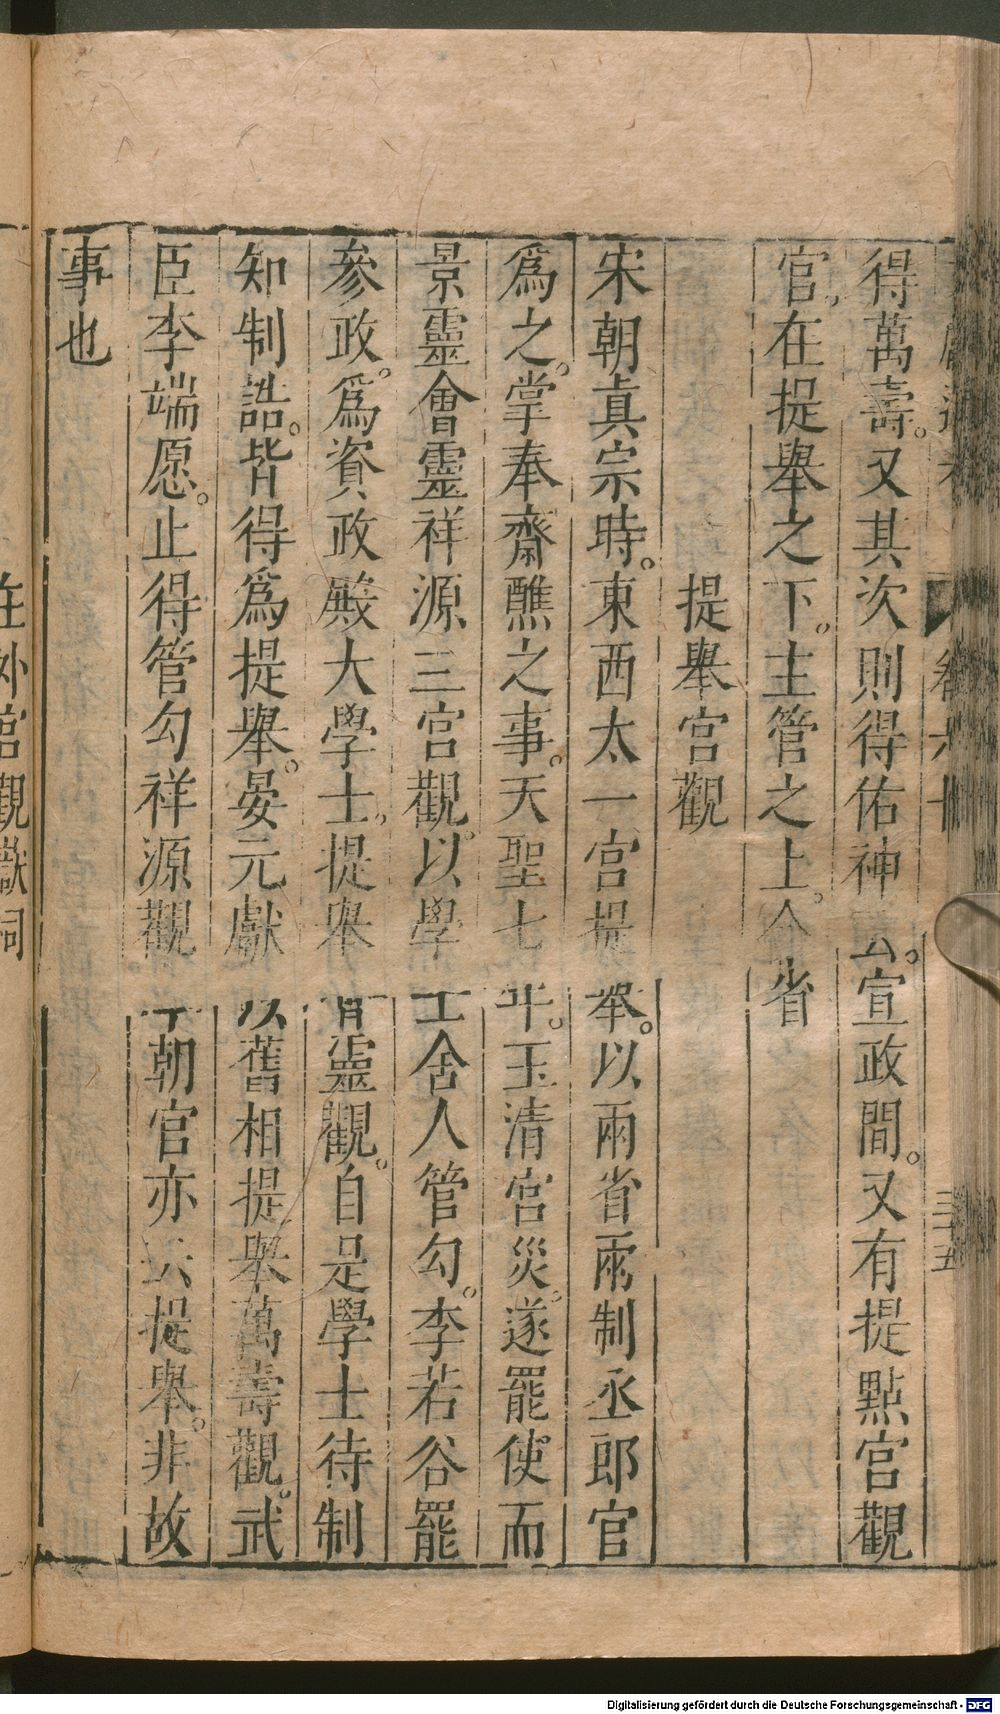 得萬壽。又其次則得佑神公。宣政間。又有提點宮觀
官。在提舉之下。主管之上。今省
提舉宮觀
宋朝真宗時。東西太一宮提舉。以兩省兩制丞郎官
爲之。掌奉齋醮之事。天聖七年。玉清宮災。遂罷使而
景靈會靈祥源三宮觀。以學士舍人管勾。李若谷罷
參政。爲資政殿大學士。提舉會靈觀。自是學士待制
知制誥。皆得爲提舉。晏元獻以舊相提舉萬壽觀。武
臣李端愿。止得管勾祥源觀。今朝官亦云提舉。非故
事也
三十五
在外宮觀嶽祠
Digitalisierung gefördert durch die Deutsche Forschungsgemeinschaft - DFG